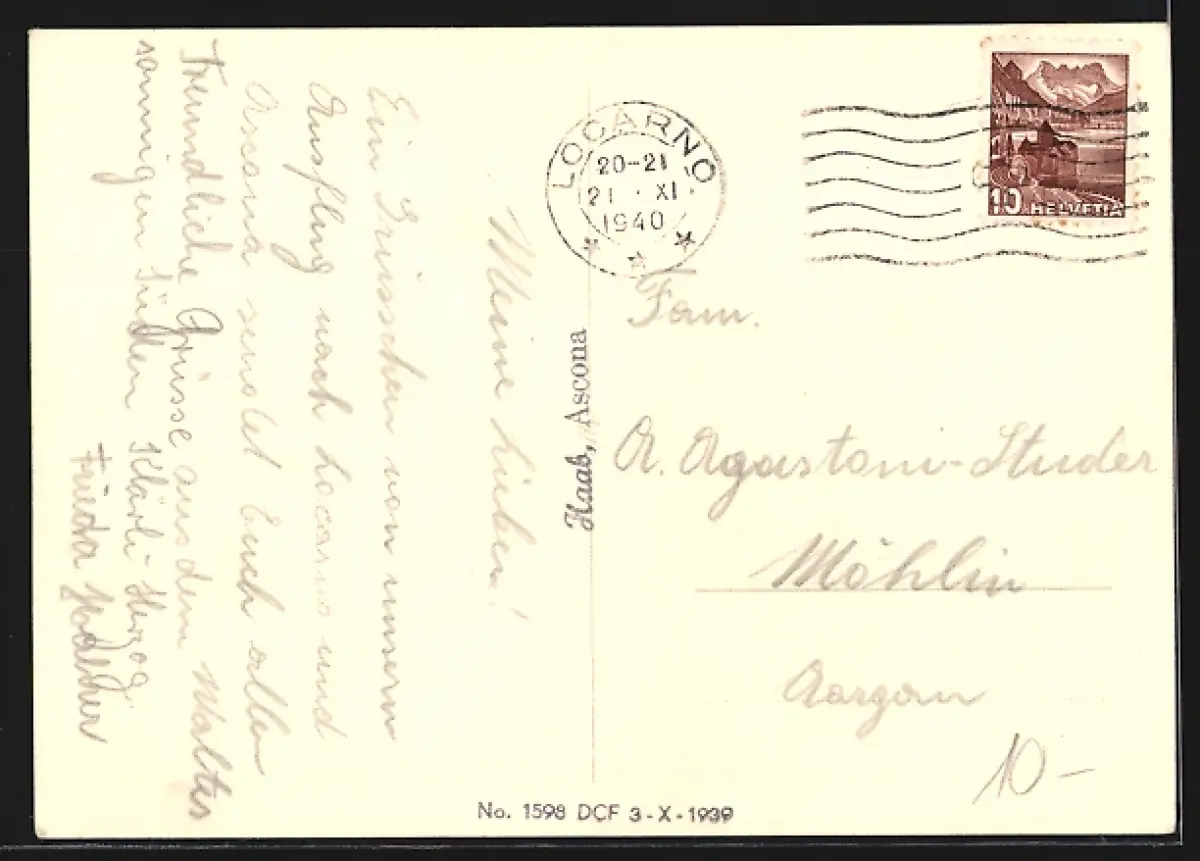 Meine Lieben!
Ein Grüsschen von unserm
Ausflug nach Locarno und
Ascona sendet Euch allen
Walter
Freundliche Grüsse aus dem
sonnigen Süden Klärli Herzog
Frieda Walther
Haab, Ascona
LOCARNO
20-21
21 · XI
1940
10 HELVETIA
Fam.
A. Agustoni-Studer
Möhlin
Aargau
10 -
No. 1598 DCF 3-X-1939